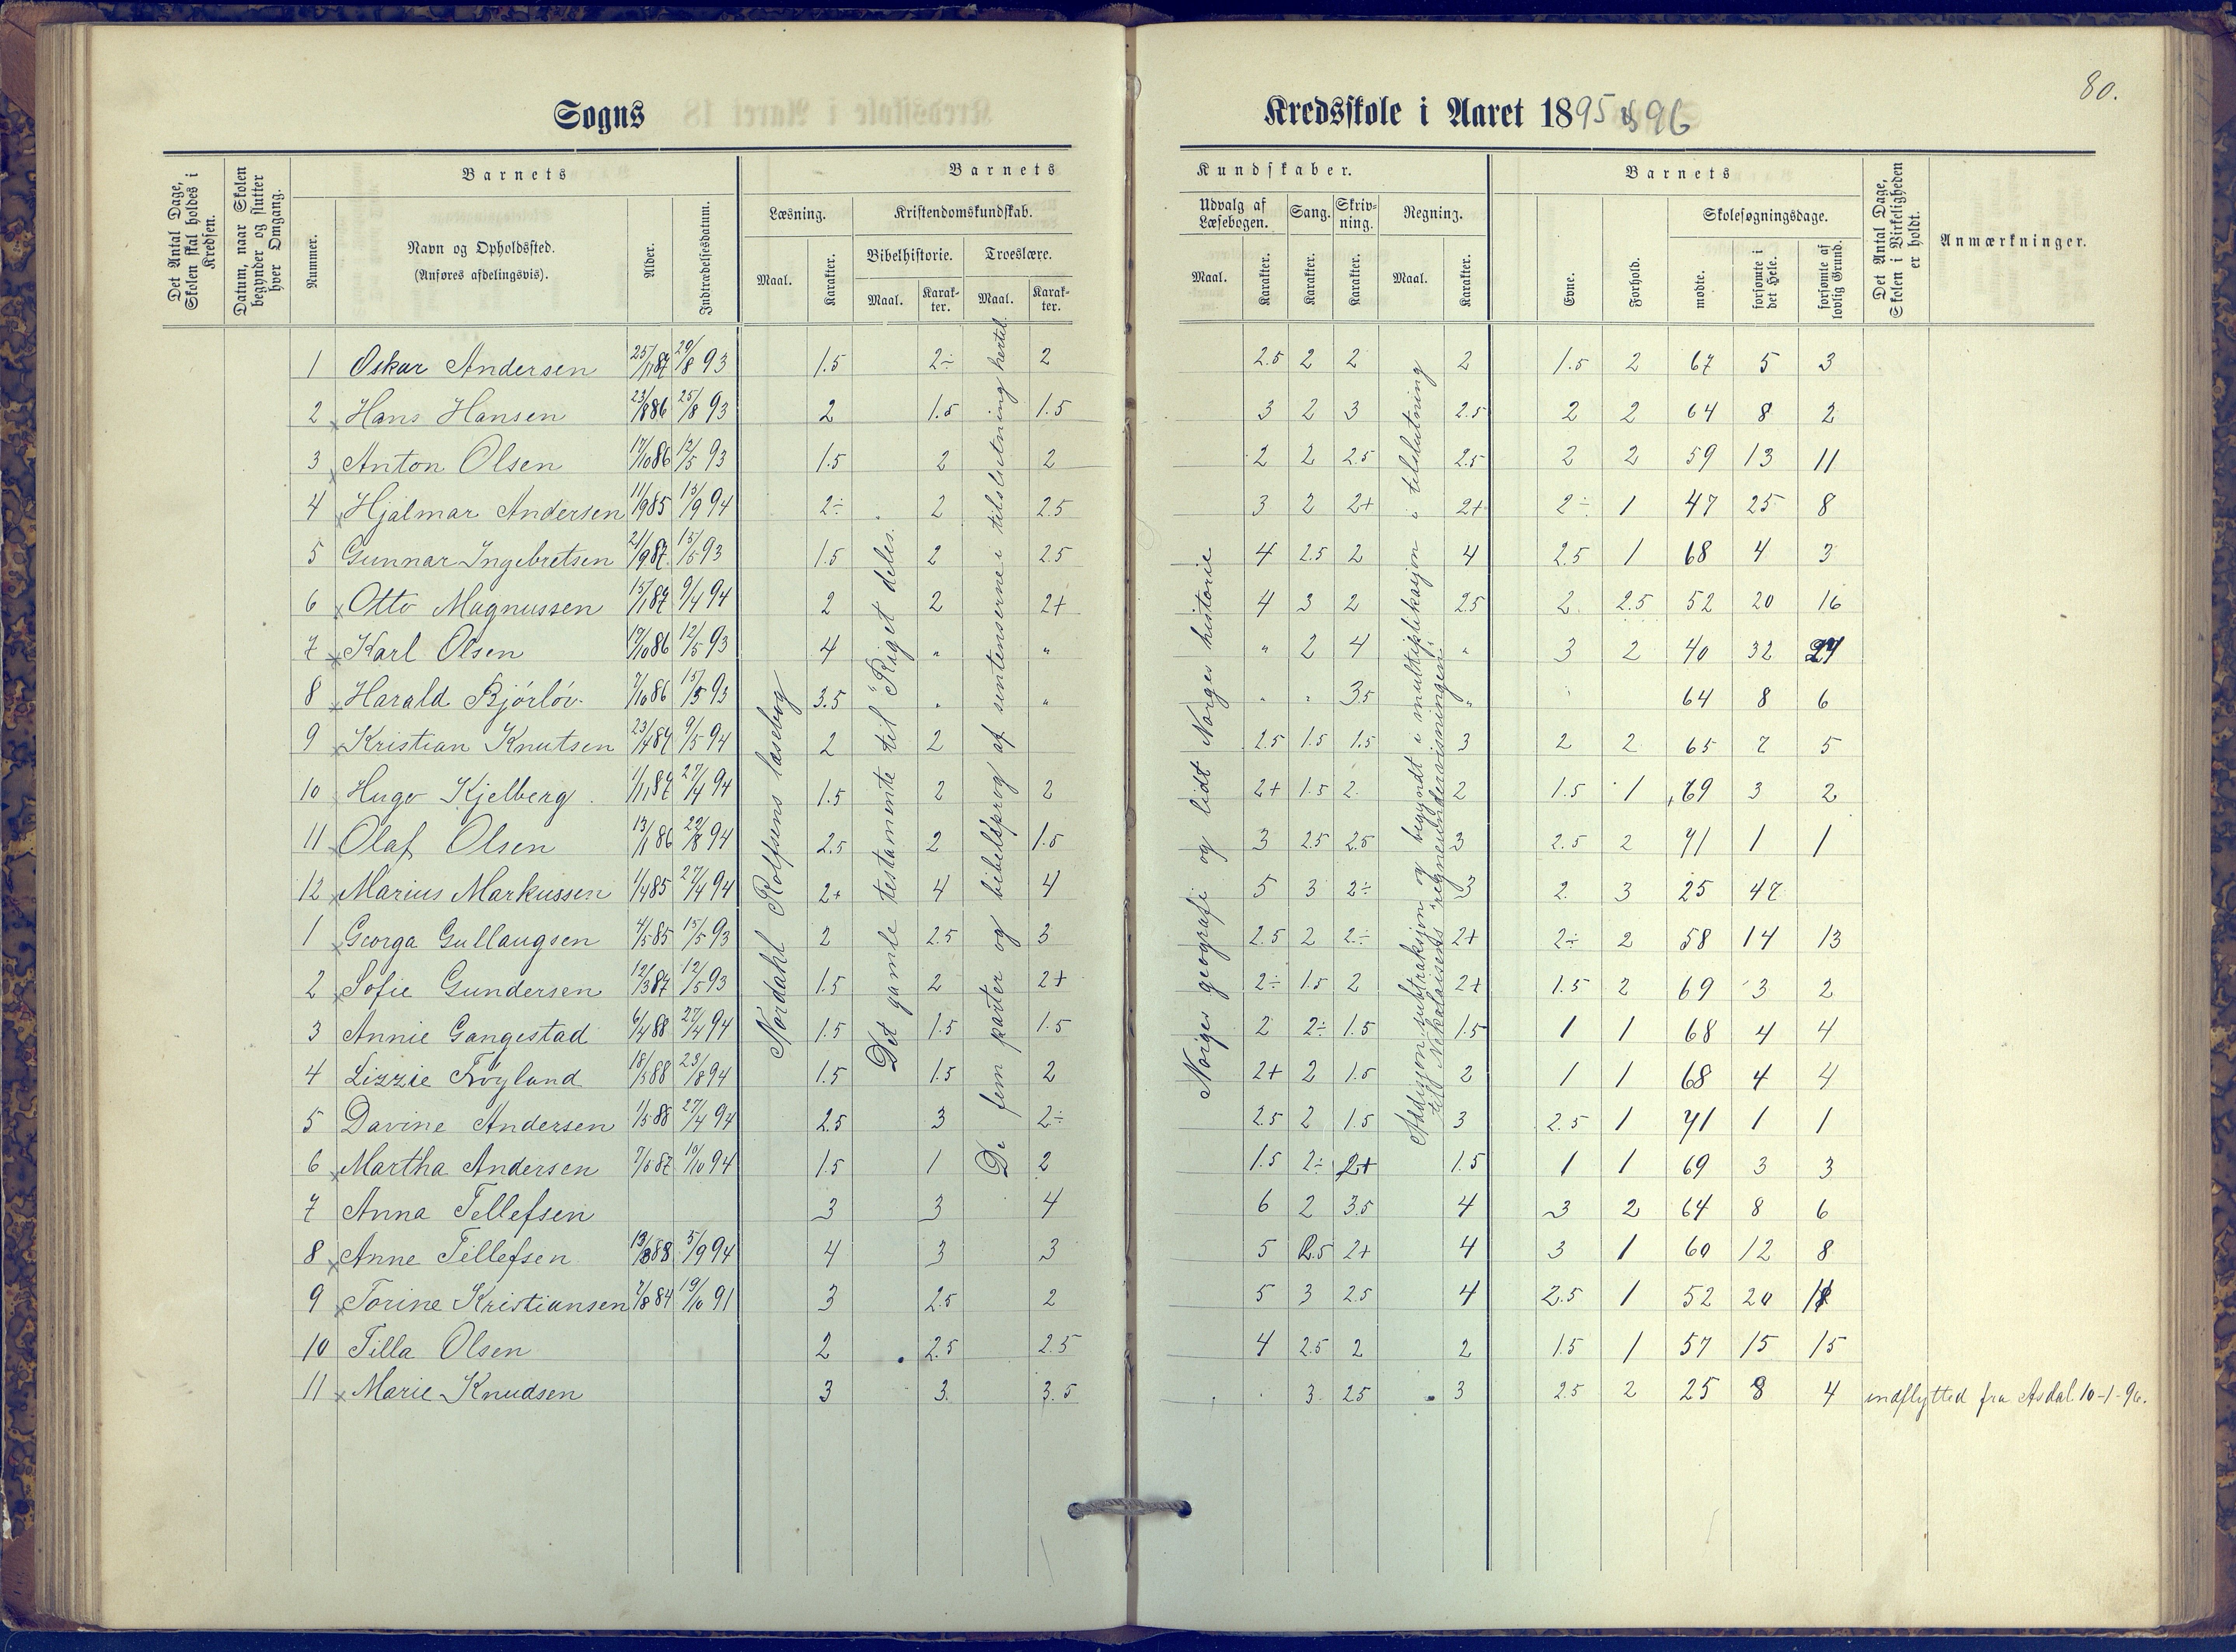 80.
Sogns
Kredsskole i Aaret 1895 & 96
Det Antal Dage, Skolen skal holdes i Kredsen.
Datum, naar Skolen begynder og slutter hver Omgang.
Barnets
Nummer.
Navn og Opholdssted.
(Anføres afdelingsvis).
Alder.
Indtrædelsesdatum.
Barnets
Kundskaber.
Læsning.
Maal.
Karakter.
Kristendomskundskab.
Bibelhistorie.
Maal.
Karak-
ter.
Troeslære.
Maal.
Karak-
ter.
Udvalg af
Læsebogen.
Maal.
Karakter.
Sang.
Karakter.
Skriv-
ning.
Karakter.
Regning.
Maal.
Karakter.
Barnets
Evne.
Forhold.
Skolesøgningsdage.
mødte.
forsømte i det Hele.
forsømte af lovlig Grund.
Det Antal Dage, Skolen i Virkeligheden er holdt.
Anmærkninger.
Nordahl Rolfsens læsebog
Det gamle testamente til "Riget deles.
De fem parter og bibelsprog af sentenserne i tilslutning hertil.
Norges geografi og lidt Norges historie
Addisjon subtraksjon og begyndt i multiplikasjon i tilslutning
til Nikolaisens regneundervisningen.
1 Oskar Andersen 25/11 87 29/8 93 1.5 2÷ 2 2.5 2 2 2 1.5 2 67 5 3
2 Hans Hansen 23/8 86 25/8 93 2 1.5 1.5 3 2 3 2.5 2 2 64 8 2
3 Anton Olsen 17/10 86 12/5 93 1.5 2 2 2 2 2.5 2.5 2 2 59 13 11
4 Hjalmar Andersen 11/9 85 15/9 94 2÷ 2 2.5 3 2 2+ 2+ 2÷ 1 47 25 8
5 Gunnar Ingebretsen 21/9 87 15/5 93 1.5 2 2.5 4 2.5 2 4 2.5 1 68 4 3
6 Otto Magnussen 15/1 87 9/4 94 2 2 2+ 4 3 2 2.5 2 2.5 52 20 16
7 Karl Olsen 17/10 86 12/5 93 4 " " " 2 4 " 3 2 40 32
8 Harald Bjórlóv 7/10 86 15/5 93 3.5 " " " " 3.5 " 64 8 6
9 Kristian Knutsen 23/4 87 9/5 94 2 2 2.5 1.5 1.5 3 2 2 65 7 5
10 Hugo Kjelberg 1/11 87 27/4 94 1.5 2 2 2+ 1.5 2 2 1.5 1 69 3 2
11 Olaf Olsen 13/1 86 29/8 94 2.5 2 1.5 3 2.5 2.5 3 2.5 2 71 1 1
12 Marius Markussen 1/4 85 27/4 94 2+ 4 4 5 3 2÷ 3 2 3 25 47
1 Georga Gullaugsen 4/5 85 15/5 93 2 2.5 3 2.5 2 2÷ 2+ 2÷ 2 58 14 13
2 Sofie Gundersen 12/3 87 12/5 93 1.5 2 2+ 2÷ 1.5 2 2+ 1.5 2 69 3 2
3 Annie Gangestad 6/4 88 27/4 94 1.5 1.5 1.5 2 2÷ 1.5 1.5 1 1 68 4 4
4 Lizzie Fróyland 18/5 88 23/8 94 1.5 1.5 2 2+ 2 1.5 2 1 1 68 4 4
5 Davine Andersen 1/5 88 27/4 94 2.5 3 2÷ 2.5 2 1.5 3 2.5 1 71 1 1
6 Martha Andersen 7/5 87 10/10 94 1.5 1 2 1.5 2÷ 2+ 1.5 1 1 69 3 3
7 Anna Tellefsen 3 3 4 6 2 3.5 4 3 2 64 8 6
8 Anne Tellefsen 13/3 88 5/9 94 4 3 3 5 2.5 2+ 4 3 1 60 12 8
9 Torine Kristiansen 7/8 84 19/10 91 3 2.5 2 5 3 2.5 4 2.5 1 52 20
10 Tilla Olsen 2 2.5 2.5 4 2.5 2 2 1.5 1 57 15 15
11 Marie Knudsen 3 3. 3.5 3 2.5 3 2.5 2 25 8 4 indflytted fra Asdal 10-1-96.